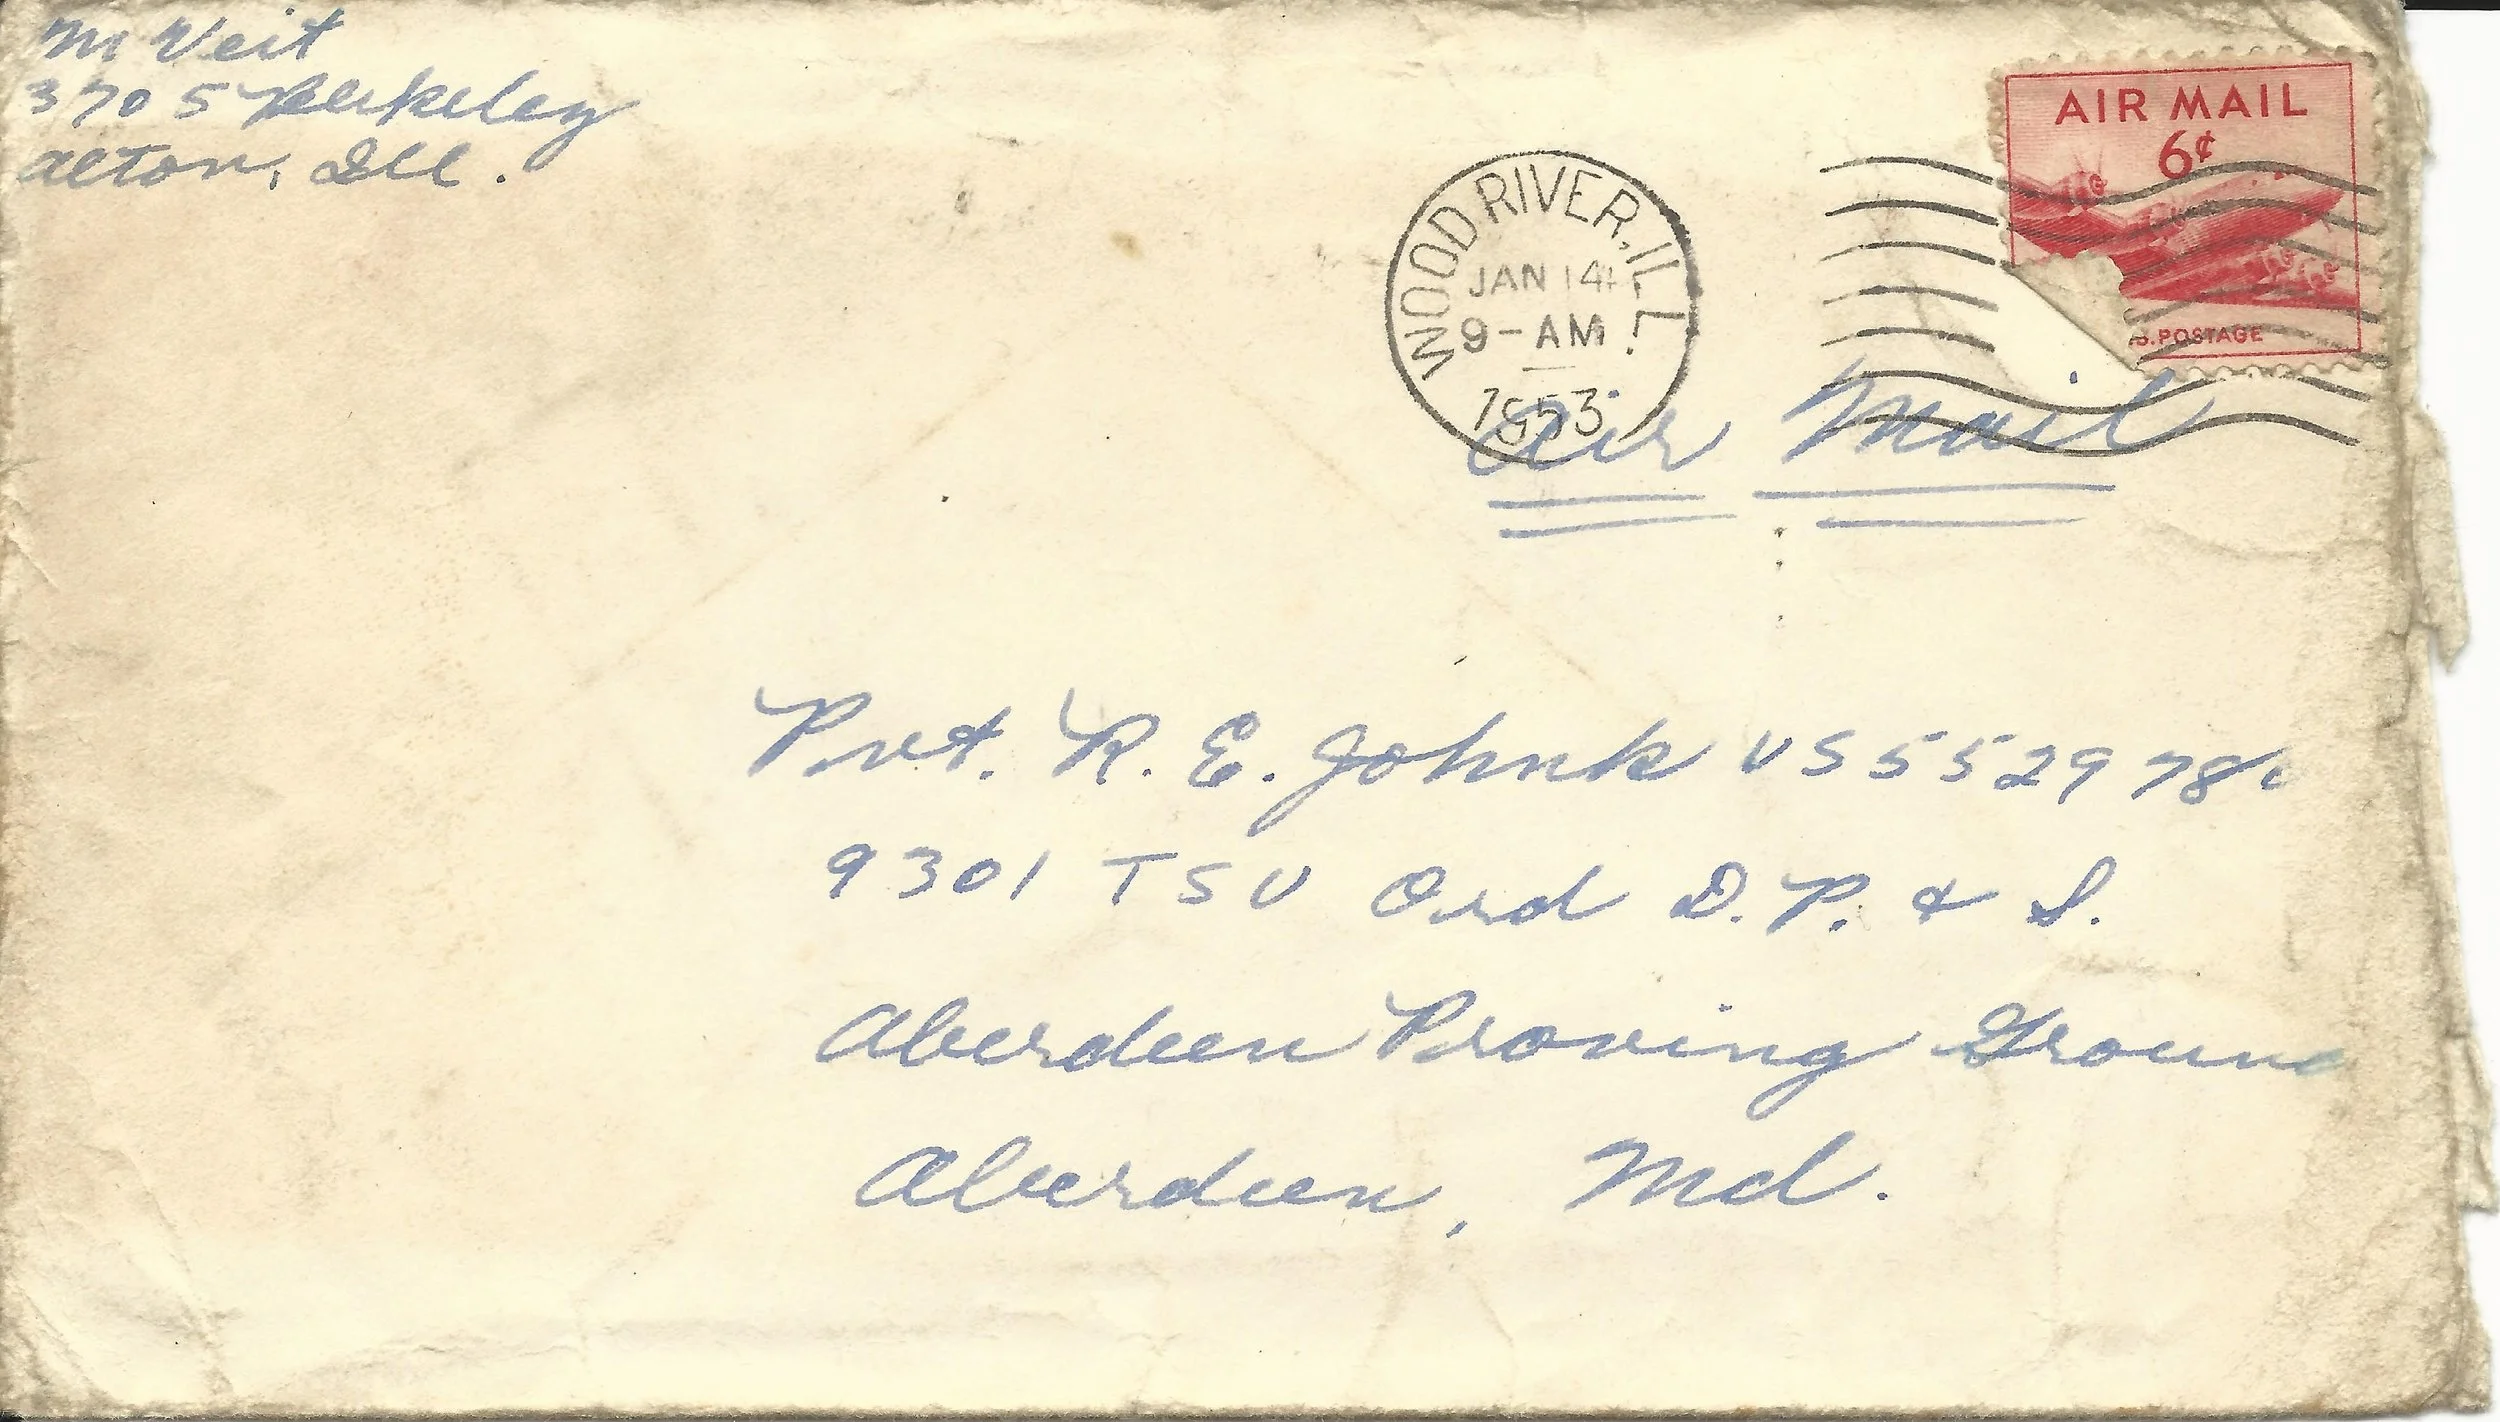 M Veit
3705 Berkeley
Alton, Ill.
AIR MAIL
6¢
U.S. POSTAGE
WOOD RIVER, ILL.
JAN 14
9-AM
1953
Air Mail
Pvt. R. E. Johnk
9301 TSU Ord D.P. & S.
Aberdeen Proving Ground
Aberdeen, Md.